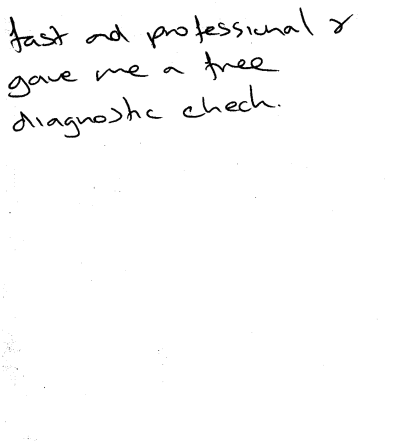 fast and professional &
gave me a free
diagnostic check.